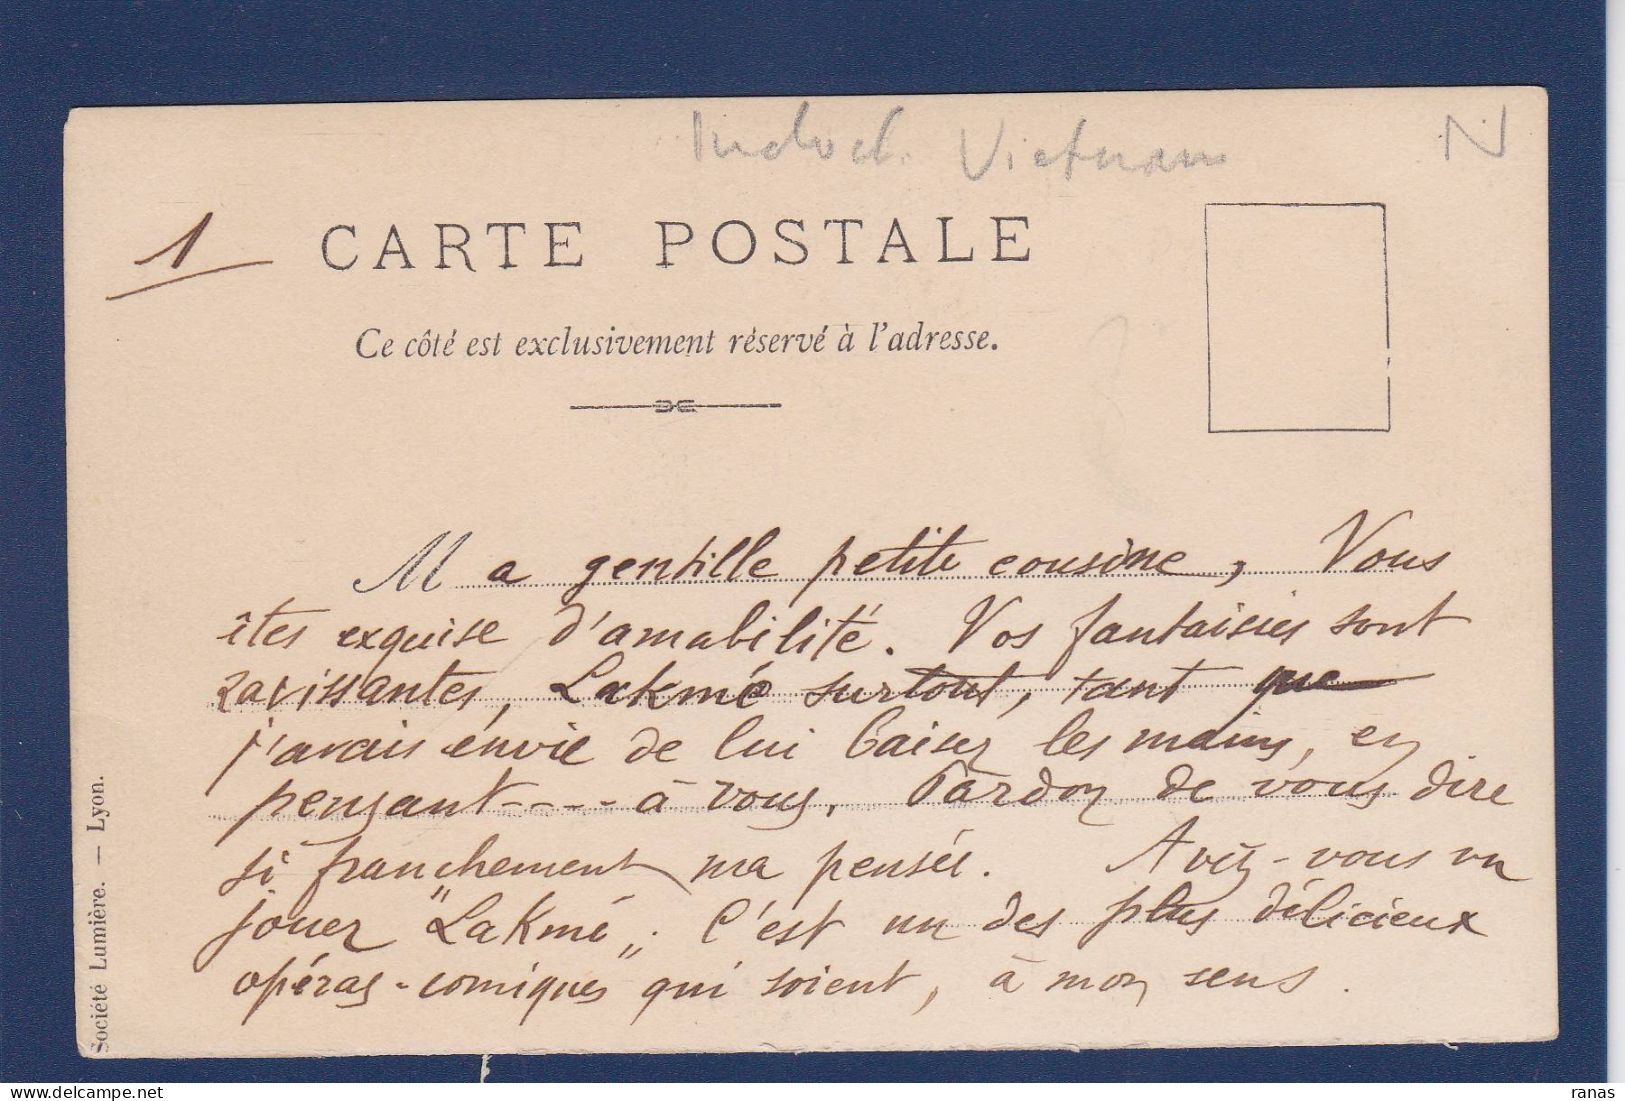 Indoch. Vietnam N
1
CARTE POSTALE
Ce côté est exclusivement réservé à l'adresse.
Ma gentille petite cousine, Vous
êtes exquise d'amabilité. Vos fantaisies sont
ravissantes, Lakmé surtout, tant que
j'avais envie de lui baiser les mains, en
pensant---- à vous. Pardon de vous dire
si franchement ma pensée. Avez-vous vu
jouer "Lakmé". C'est un des plus délicieux
opéras-comiques qui soient, à mon sens.
Société Lumière. — Lyon.
ranas